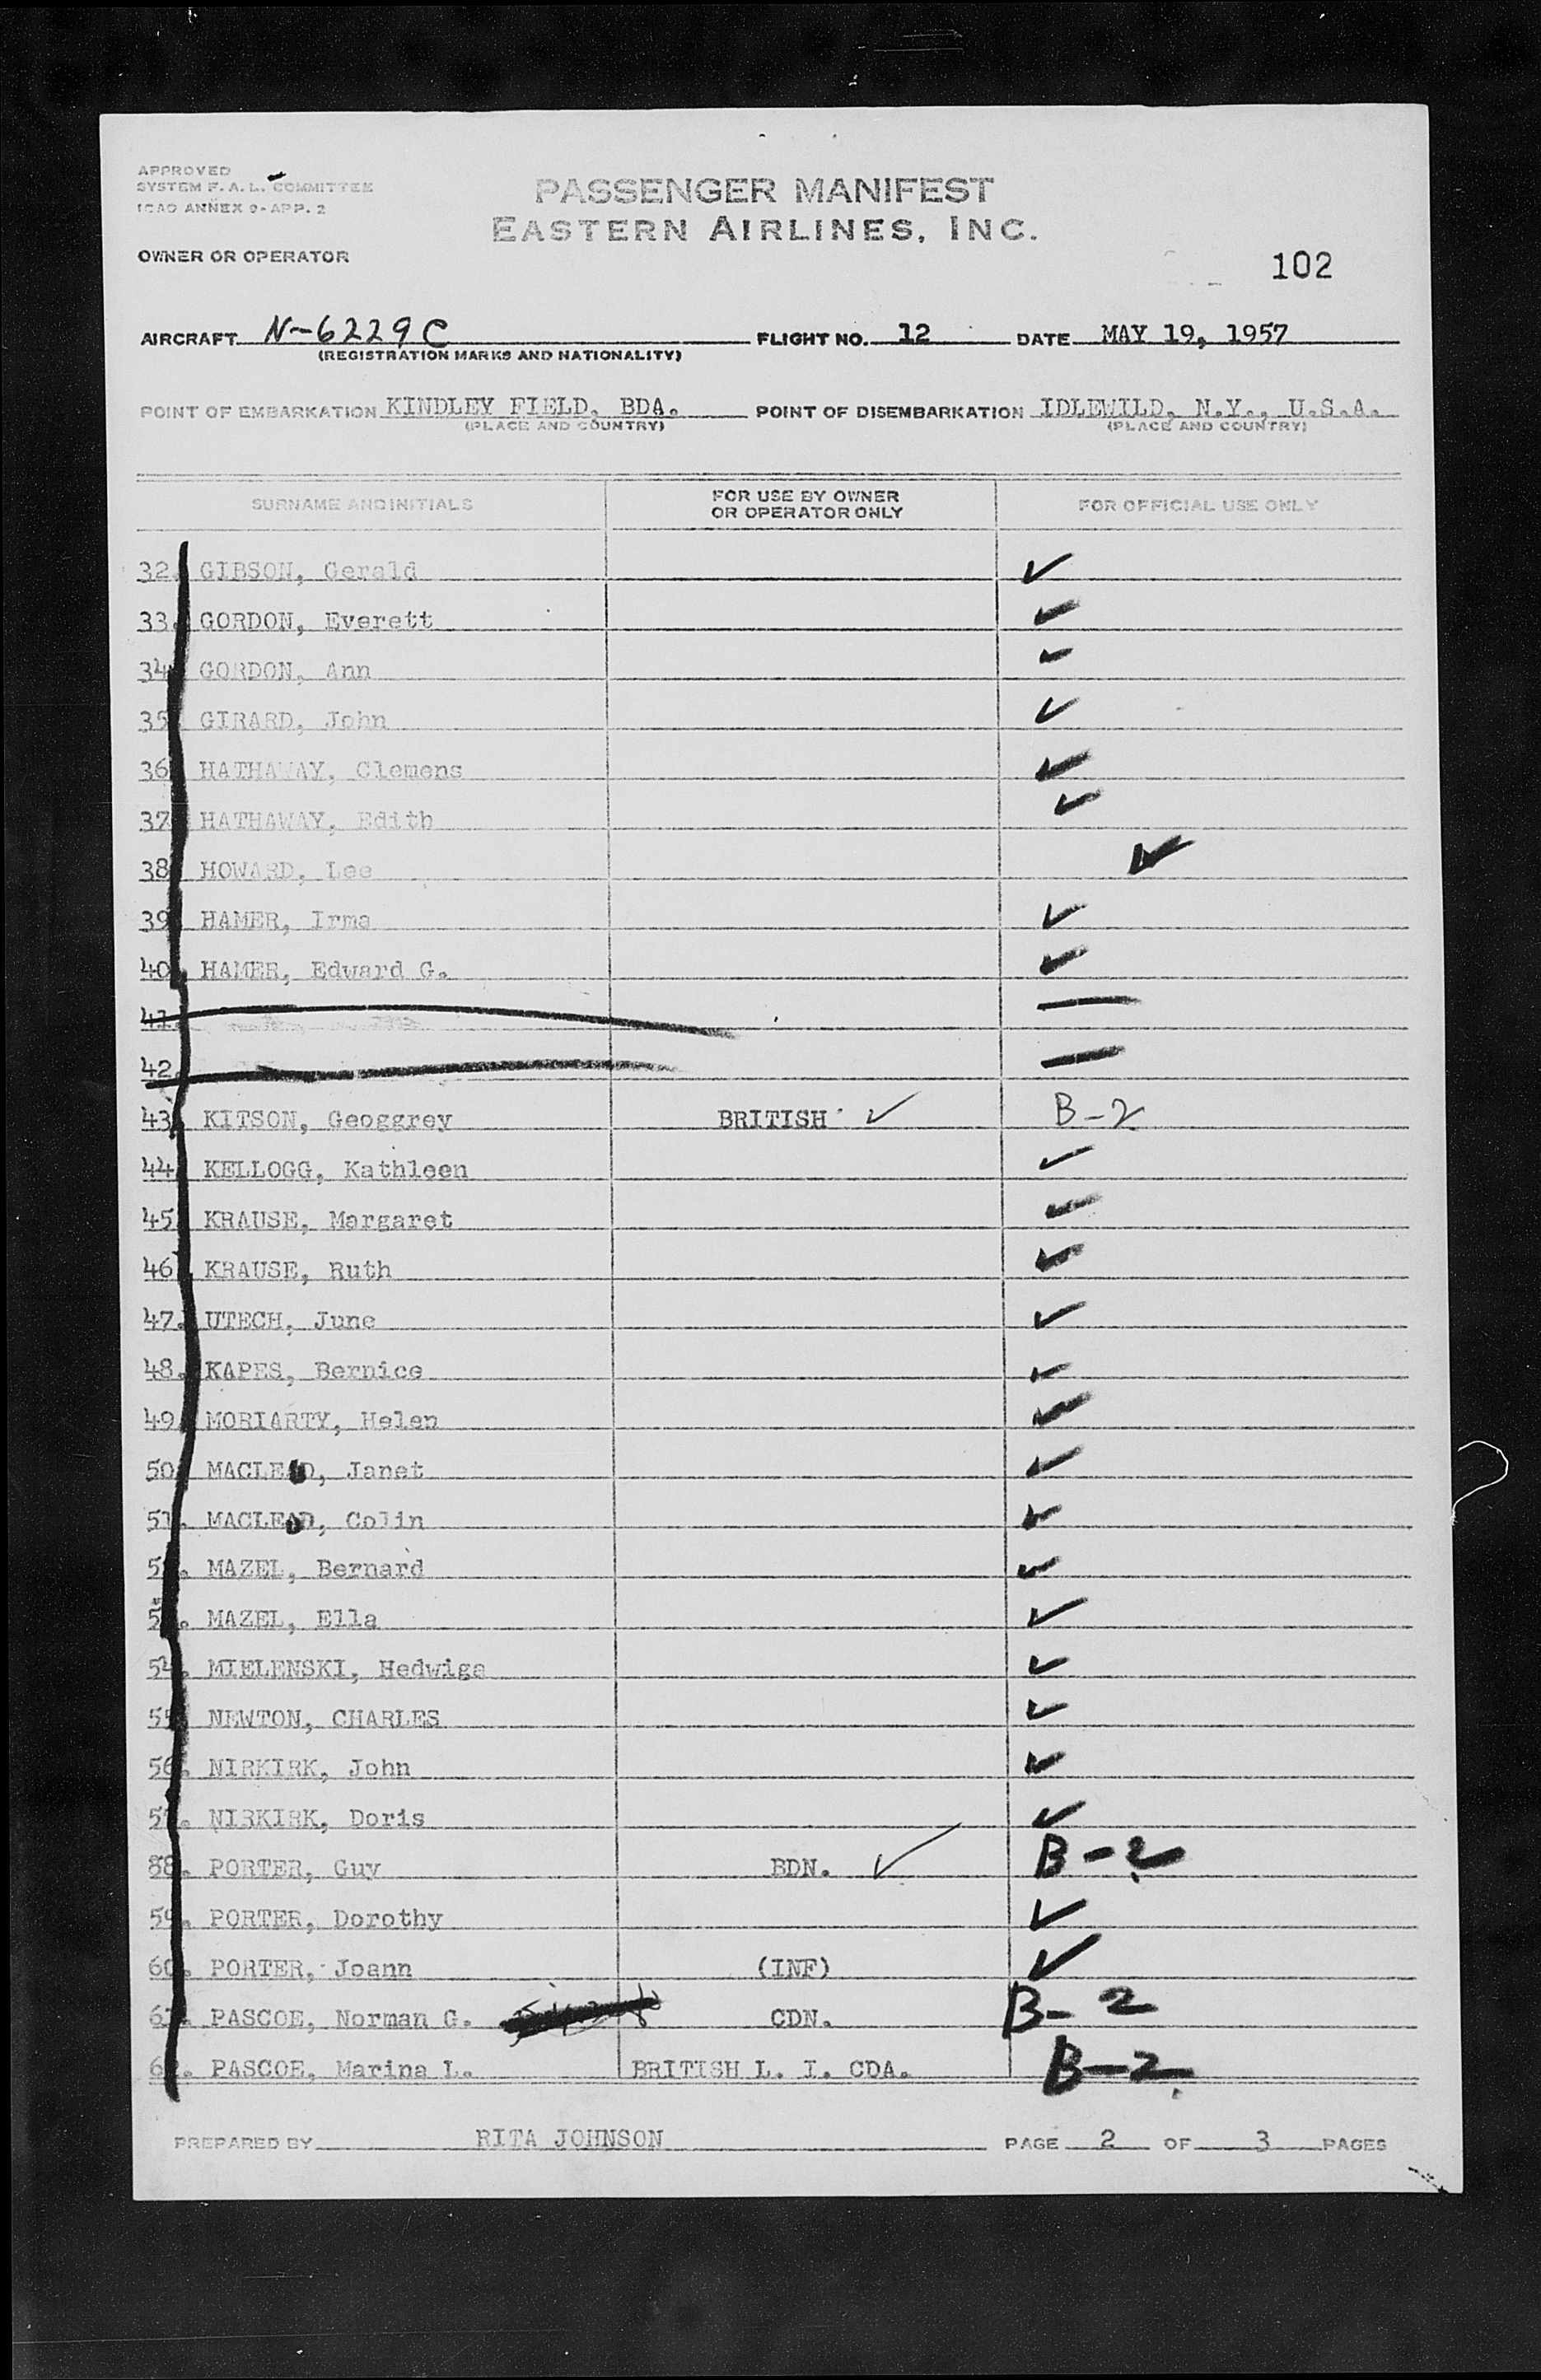 APPROVED
SYSTEM F. A. L. COMMITTEE
ICAO ANNEX 9-APP. 2
PASSENGER MANIFEST
EASTERN AIRLINES, INC.
OWNER OR OPERATOR
102
AIRCRAFT N-6229C FLIGHT NO. 12 DATE MAY 19, 1957
(REGISTRATION MARKS AND NATIONALITY)
POINT OF EMBARKATION KINDLEY FIELD, BDA. POINT OF DISEMBARKATION IDLEWILD, N.Y., U.S.A.
(PLACE AND COUNTRY) (PLACE AND COUNTRY)
SURNAME AND INITIALS FOR USE BY OWNER OR OPERATOR ONLY FOR OFFICIAL USE ONLY
32. GIBSON, Gerald ✓
33. GORDON, Everett ✓
34. GORDON, Ann ✓
35. GIRARD, John ✓
36. HATHAWAY, Clemens ✓
37. HATHAWAY, Edith ✓
38. HOWARD, Lee ✓
39. HAMER, Irma ✓
40. HAMER, Edward G. ✓
41. —
42. —
43. KITSON, Geoggrey BRITISH ✓ B-2
44. KELLOGG, Kathleen ✓
45. KRAUSE, Margaret ✓
46. KRAUSE, Ruth ✓
47. UTECH, June ✓
48. KAPES, Bernice ✓
49. MORIARTY, Helen ✓
50. MACLEOD, Janet ✓
51. MACLEOD, Colin ✓
5. MAZEL, Bernard ✓
5. MAZEL, Ella ✓
54. MIELENSKI, Hedwiga ✓
55. NEWTON, CHARLES ✓
56. NIRKIRK, John ✓
57. NIRKIRK, Doris ✓
88. PORTER, Guy BDN. ✓ B-2
59. PORTER, Dorothy ✓
60. PORTER, Joann (INF) ✓
61. PASCOE, Norman G. CDN. B-2
62. PASCOE, Marina L. BRITISH L. I. CDA. B-2
PREPARED BY RITA JOHNSON PAGE 2 OF 3 PAGES